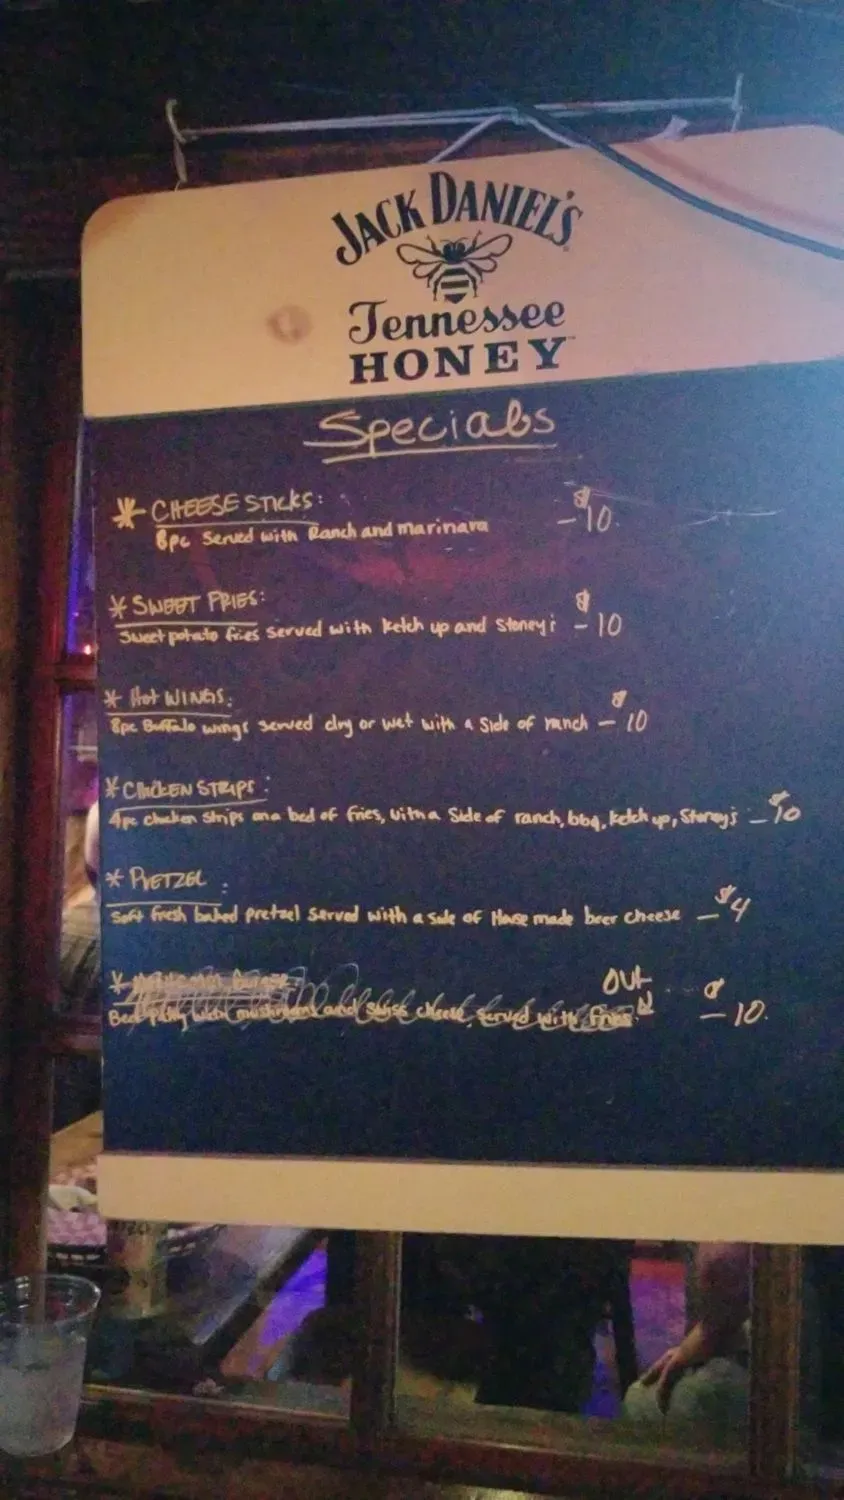 JACK DANIEL'S
Tennessee
HONEY
Specials
* CHEESE STICKS: $
8pc Served with Ranch and marinara - 10
* SWEET FRIES: $
Sweet potato fries served with ketch up and Stoney's - 10
* Hot WINGS: $
8pc Buffalo wings served dry or wet with a Side of ranch - 10
* CHICKEN STRIPS:
4pc chicken strips on a bed of fries, with a Side of ranch, bbq, ketch up, Stoney's - $10
* PRETZEL:
Soft fresh baked pretzel served with a side of House made beer cheese - $4
* Burger: OUT $
Beef patty with mushrooms and swiss cheese, served with fries - 10